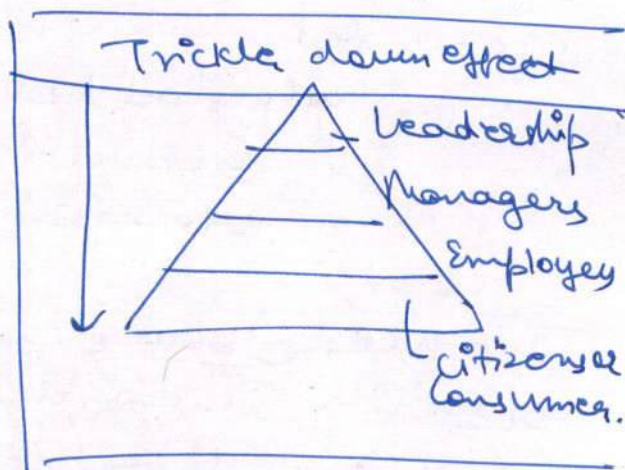 Trickle down effect
Leadership
Managers
Employees
citizens or
Consumer.